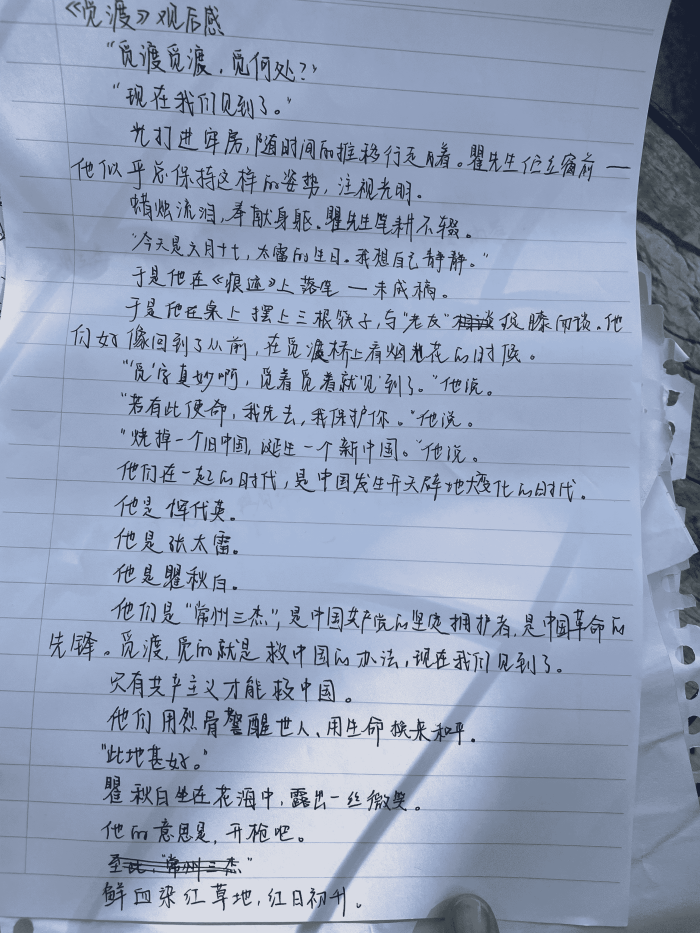 《觅渡》观后感
“觅渡觅渡，觅何处？”
“现在我们见到了。”
光打进牢房，随时间的推移行走着。瞿先生伫立窗前——
他似乎总保持这样的姿势，注视光明。
蜡烛流泪，奉献身躯。瞿先生笔耕不辍。
“今天是六月十七，太雷的生日。我想自己静静。”
于是他在《痕迹》上落笔——未成稿。
于是他在桌上摆上三根筷子，与“老友”促膝而谈。他
们好像回到了从前，在觅渡桥上看烟花的时候。
“‘觅’字真妙啊，觅着觅着就‘见’到了。”他说。
“若有此使命，我先去，我保护你。”他说。
“烧掉一个旧中国，诞生一个新中国。”他说。
他们在一起的时代，是中国发生开天辟地大变化的时代。
他是恽代英。
他是张太雷。
他是瞿秋白。
他们是“常州三杰”，是中国共产党的坚定拥护者，是中国革命的
先锋。觅渡，觅的就是救中国的办法，现在我们见到了。
只有共产主义才能救中国。
他们用烈骨警醒世人、用生命换来和平。
“此地甚好。”
瞿秋白坐在花海中，露出一丝微笑。
他的意思是，开枪吧。
至此，“常州三杰”
鲜血染红草地，红日初升。